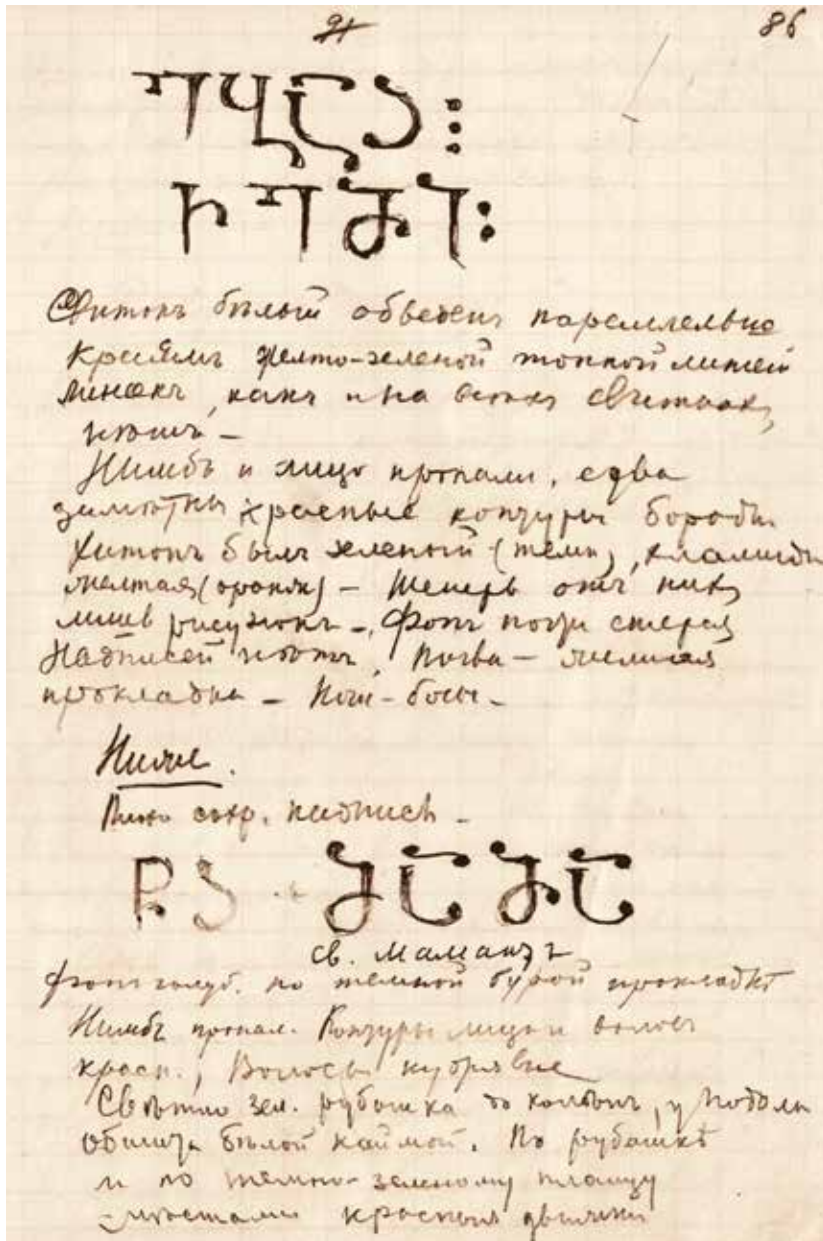 86
Свитокъ бѣлый обведенъ параллельно
краямъ желто-зеленой тонкой линіей
какъ и на всѣхъ
Нимбъ и лицо пропали, едва
замѣтны красные контуры бороды
Хитонъ былъ зеленый (темн), хламида
желтая (оранж) – теперь отъ нихъ
лишь рисунокъ –, Фонъ почти стерся
Надписей нѣтъ, Почва – желтая
прокладка – Ноги – босы –
Ниже.
сохр. надпись –
св. Мамантъ
Фонъ голуб. по темной бурой прокладкѣ
Нимбъ пропал. Контуры лица и волосъ
красн., Волосы кудрявые
Свѣтло зел. рубашка до колѣнъ, у подола
обшита бѣлой каймой. По рубашкѣ
и по темно-зеленому плащу
мѣстами красныя движки